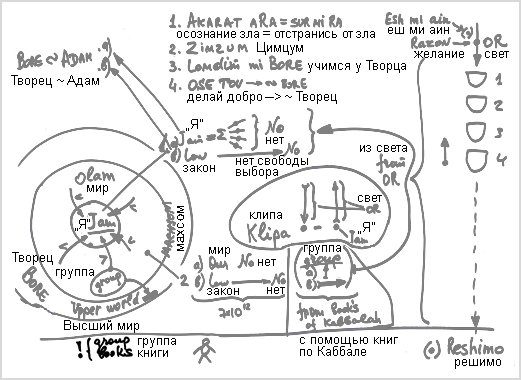 1. AKARAT ARA = SUR MIRA
осознание зла = отстранись от зла
2. ZIMZUM Цимцум
3. Lomdim mi BORE учимся у Творца
4. OSE TOV → ~ BORE
делай добро —> ~ Творец
BORE ~ ADAM
Творец ~ Адам
a)
b)
Esh mi ain
еш ми аин
Razon
(.)
OR
желание
свет
1
2
3
4
"Я"
a) I am = Σ
No
нет
b) law
No
закон
нет свободы
выбора
из света
from
OR
Olam
мир
"Я"
I am
Творец
BORE
группа
group
Upper world
Высший мир
махсом
клипа
Klipa
свет
OR
"Я"
I am
мир
a) Our No нет
b) law → No
закон нет
2
группа
group
a)
b)
from Books
of Kabbalah
с помощью книг
по Каббале
! { group группа
books книги
(.) Reshimo
решимо